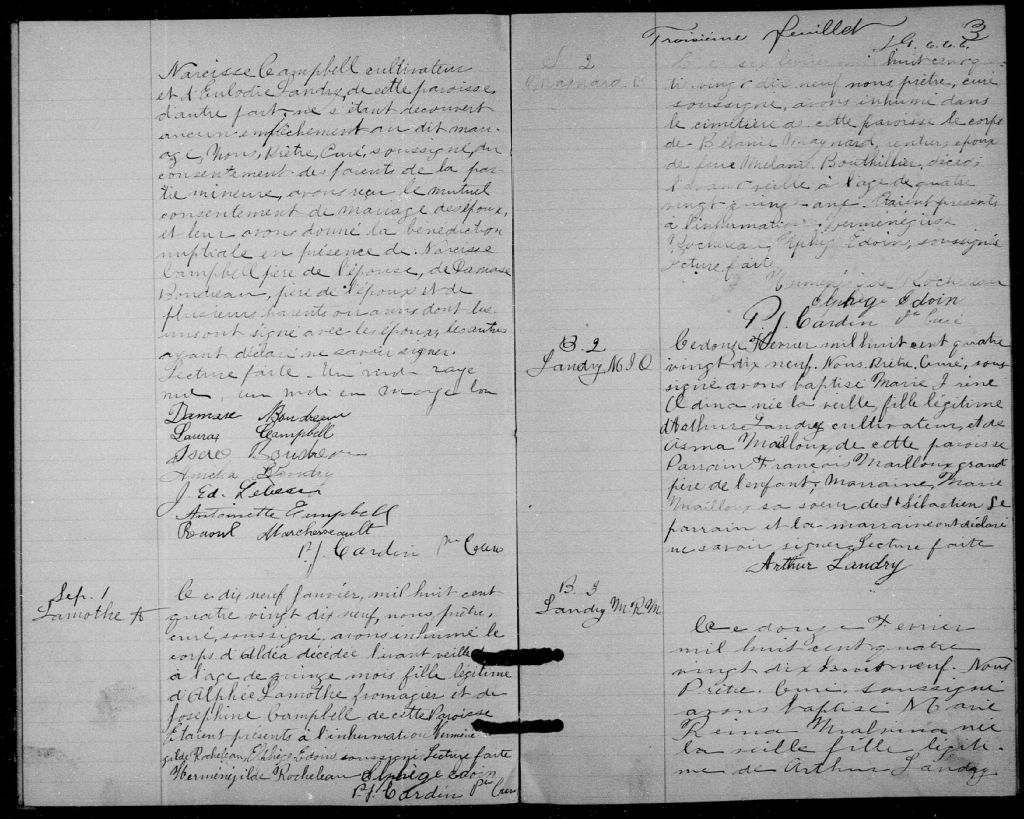 Narcisse Campbell cultivateur
et d'Eulodie Landry, de cette paroisse
d'autre part, ne s'étant decouvert
aucun empêchement au dit mari-
age, Nous, Prêtre, Curé, soussigné, du
consentement des parents de la par-
tie mineure, avons reçu le mutuel
consentement de mariage des époux,
et leur avons donné la bénédiction
nuptiale en présence de Narcisse
Campbell père de l'épouse, de Damase
Boudreau, père de l'époux et de
plusieurs parents ou amis dont les
uns ont signé avec les époux, les autres
ayant déclaré ne savoir signer.
Lecture faite. Un mot rayé
nul, un mot en marge bon
Damase Boudreau
Laura Campbell
Boudreau
Amelia Landry
J. Ed.
Antoinette Campbell
Raoul Marchesseault
P. J. Cardin Ptre Curé
Sep. 1
Lamothe A
Le dix neuf Janvier, mil huit cent
quatre vingt dix neuf, nous prêtre,
curé, soussigné, avons inhumé le
corps d'Aldéa décédée l'avant veille
à l'age de quinze mois fille légitime
d'Alphée Lamothe fromagier et de
Joséphine Campbell de cette Paroisse
Etaient présents à l'inhumation Herméné-
gilde Rocheleau, Elphège Edoin soussignés Lecture faite
Herménégilde Rocheleau Elphège Edoin
P. J. Cardin Ptre Curé
Troisième feuillet 3
S. 2
Maynard B.
Le six février mil huit cent qua-
tre vingt dix neuf nous prêtre, curé
soussigné, avons inhumé dans
le cimetière de cette paroisse le corps
de Maynard, rentier, époux
de feue Mélanie Bouthillier, décédé
l'avant veille à l'age de quatre
vingt quinze ans. Étaient présents
à l'inhumation Herménégilde
Rocheleau, Elphège Edoin, soussignés
Lecture faite
Herménégilde Rocheleau
Elphège Edoin
P. J. Cardin Ptre Curé
B. 2
Landry M I O
Le douze Février mil huit cent quatre
vingt dix neuf. Nous, Prêtre, Curé, sous-
signé avons baptisé Marie Irène
Odina née la veille, fille légitime
d'Arthur Landry cultivateur, et de
Asma Mailloux, de cette paroisse
Parrain François Mailloux grand
père de l'enfant, Marraine, Marie
Mailloux sa soeur de St Sébastien Le
parrain et la marraine ont déclaré
ne savoir signer Lecture faite
Arthur Landry
B. 3
Landry M. R. M.
Le douze Fevrier
mil huit cent quatre
vingt dix neuf. Nous
Prêtre. Curé. soussigné
avons baptisé Marie
Reina Malvina née
la veille fille légiti-
me de Arthur Landry